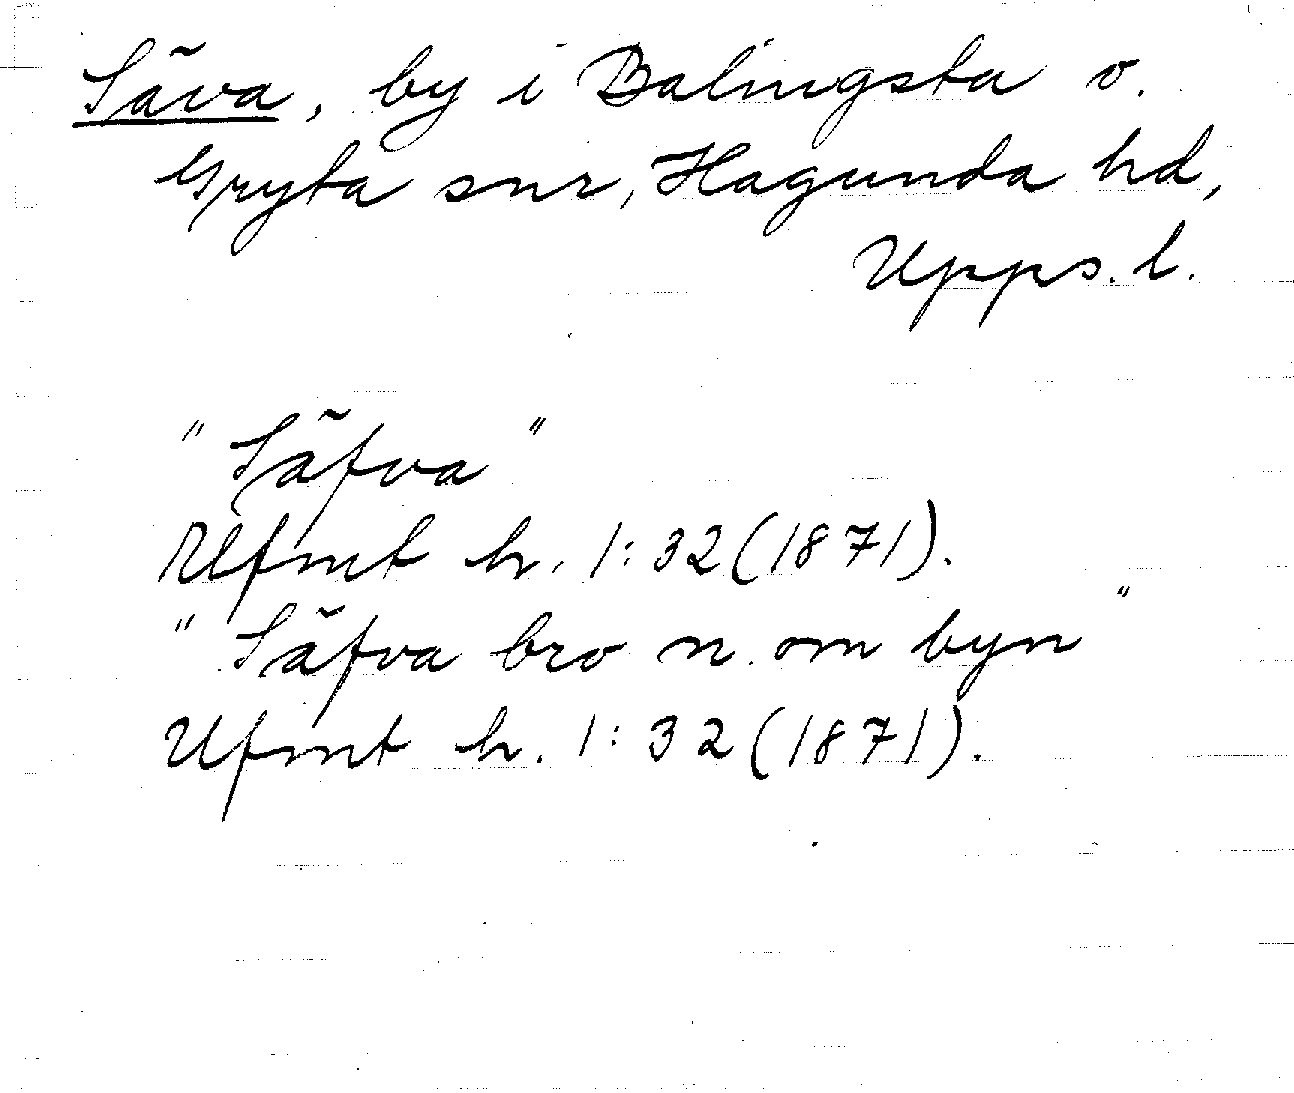 Säva, by i Balingsta o.
Gryta snr, Hagunda hd,
Upps. l.
"Säfva"
Ufmt h. 1:32(1871).
"Säfva bro n. om byn"
Ufmt h. 1:32(1871).